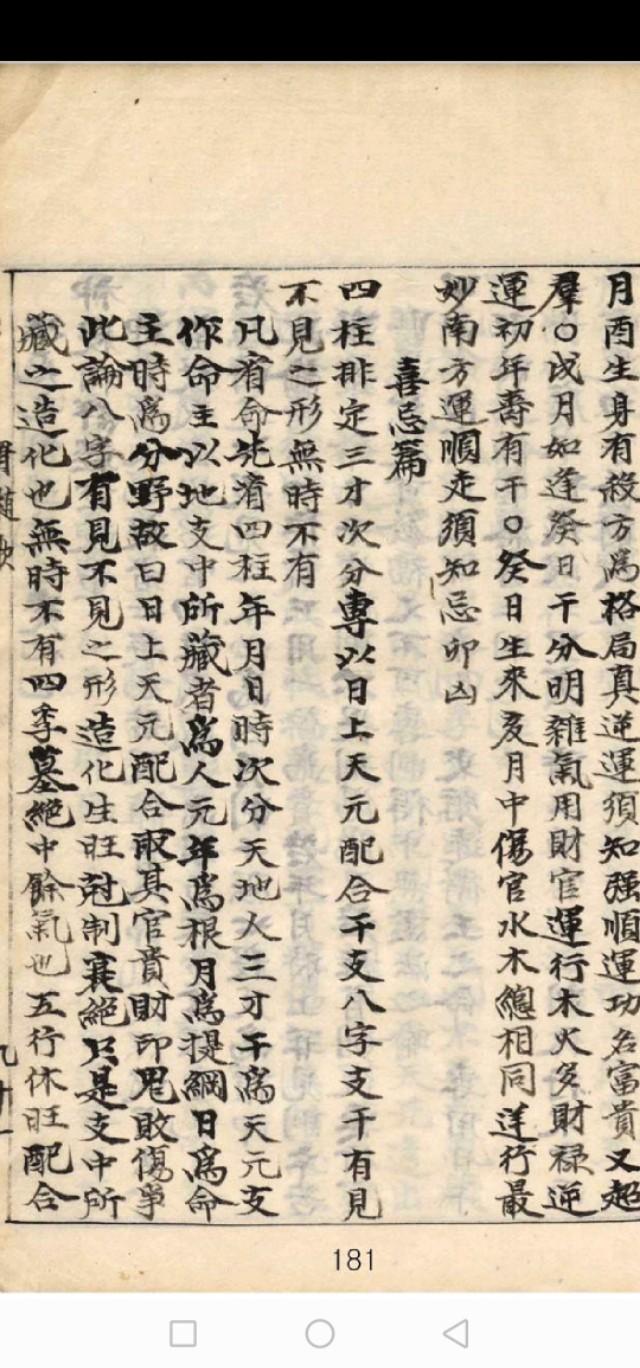 月酉生身有殺方為格局真逆運須知强順運功名富貴又起
羣○戌月如逢癸日干分明雜氣用財官運行木火多財禄逆
運初年壽有干○癸日生來亥月中傷官水木總相同逆行最
妙南方運順走須知忌卯凶
喜忌篇
四柱排定三才次分専以日上天元配合干支八字支干有見
不見之形無時不有
凡看命先清四柱年月日時次分天地人三才干為天元支
作命主以地支中所藏者為人元年為根月為提綱日為命
主時為分野故曰日上天元配合取其官貴財印鬼敗傷事
此論八字有見不見之形造化生旺尅制衰絕只是支中所
藏之造化也無時不有四季墓絕中餘氣也五行休旺配合
181